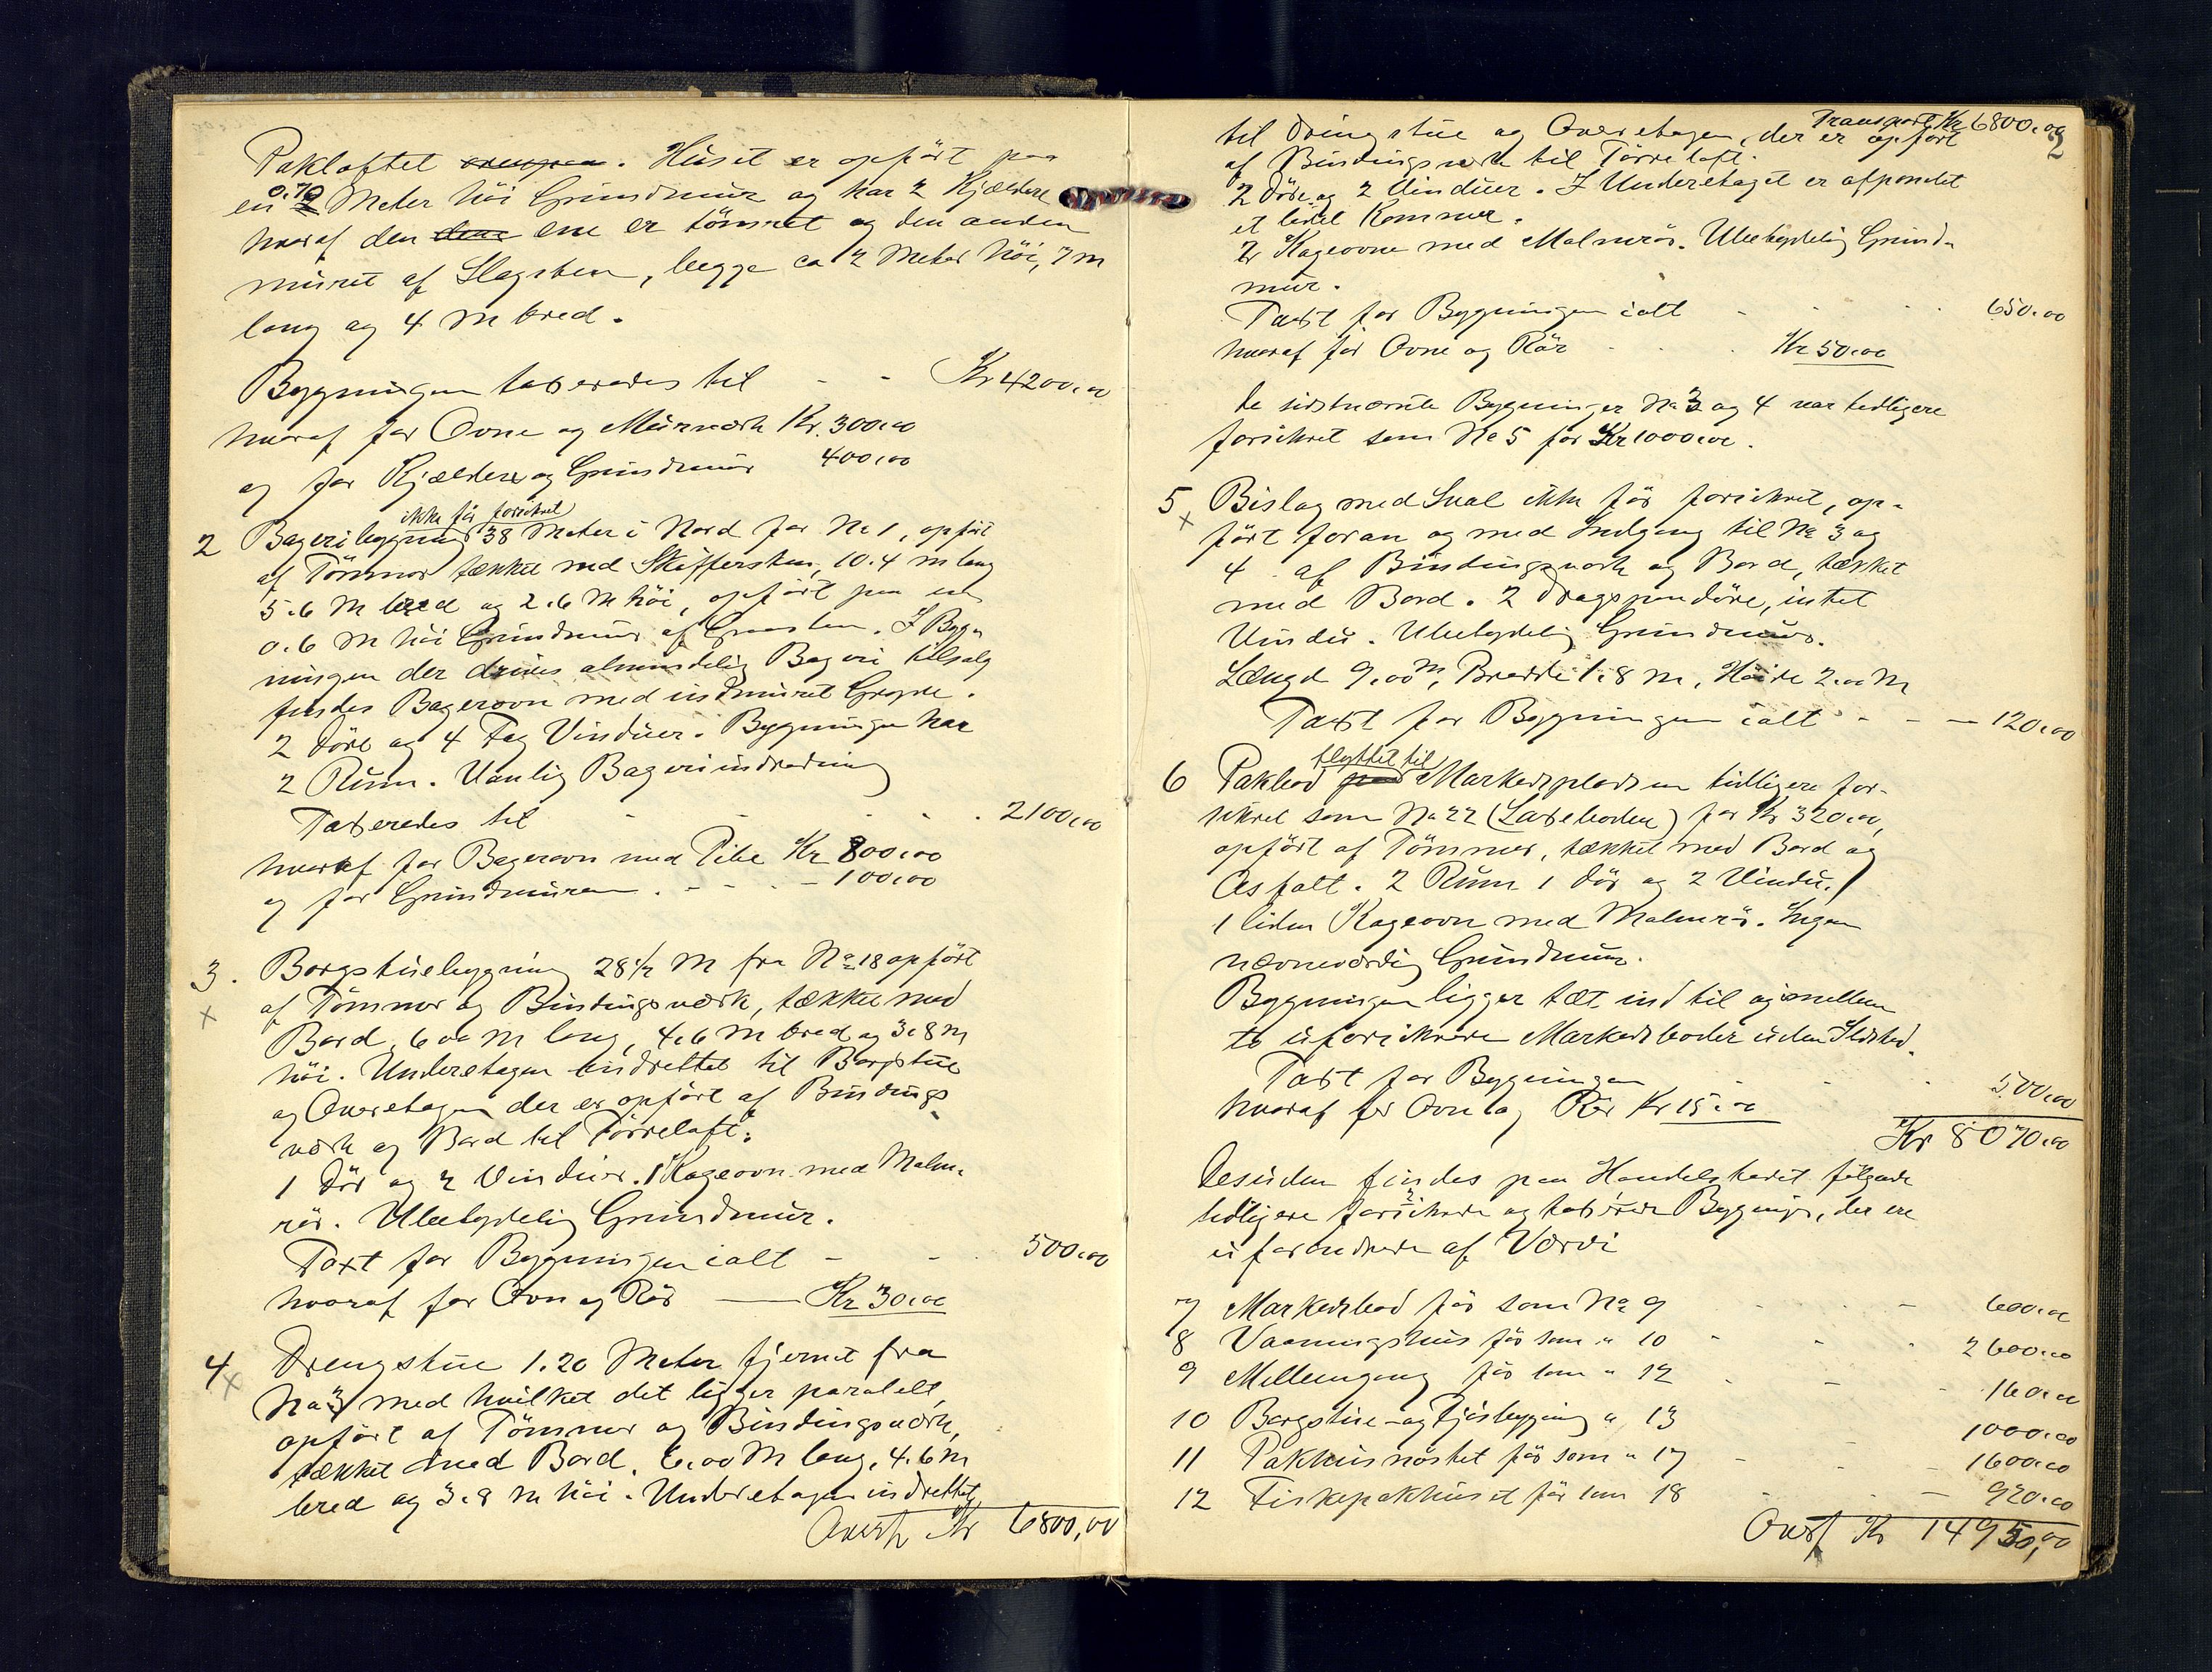 Pakloftet. Huset er opført paa
en 0.70 Meter höi Grundmur og har 2 Kjældere
hvoraf den ene er tömret og den anden
muret af Slagsten, begge ca 2 Meter höi, 7 m
lang og 4 M bred.
Bygningen taxeredes til - - Kr 4200,00
hvoraf for Ovne og Murværk Kr. 300,00
og for Kjældere og Grundmur 400,00
ikke før forsikret
2 Bageribygning 38 Meter i Nord for No 1, opført
af Tömmer tækket med Skiffersten, 10.4 m lang
5.6 M bred og 2.6 M höi, opført paa en
0.6 M höi Grundmur af Graasten. I Byg-
ningen der drives almindelig Bageri tilsalg
findes Bagerovn med indmuret Grype.
2 Döre og 4 Fag Vinduer. Bygningen har
2 Rum. Vanlig Bageriindredning
Taxeredes til - - - 2100,00
hvoraf for Bagerovn med Pibe Kr 800,00
og for Grundmuren - - - 100,00
3. Borgstuebygning 28½ M fra No 18 opført
x af Tömmer og Bindingsværk, tækket med
Bord, 6.00 M lang, 4.6 M bred og 3.8 M
höi. Underetagen indrettet til Borgstue
og Overetagen der er opført af Bindings
værk og Bord til Törreloft.
1 Dör og 2 Vinduer. 1 Kageovn med Malm-
rör. Ubetydelig Grundmur.
Taxt for Bygningen ialt - - 500,00
hvoraf for Ovn og Rör — Kr 30,00
4 Drengstue 1.20 Meter fjernet fra
x No 3 med hvilket det ligger paralelt,
opført af Tömmer og Bindingsværk,
tækket med Bord. 6.00 M lang, 4.6 m
bred og 3.8 m höi. Underetagen indrettet
Overf Kr 6800,00
Transport Kr 6800,00
2
til Drengstue og Overetagen, der er opført
af Bindingsværk til Törreloft.
2 Döre og 2 Vinduer. I Underetaget er afpanelet
et lidet Kammer.
2 Kageovne med Malmrör. Ubetydelig Grund-
mur.
Taxt for Bygningen ialt - - - 650,00
hvoraf for Ovne og Rör - - Kr 50,00
De sidstnævnte Bygninger No 3 og 4 var tidligere
forsikret som No 5 for Kr 1000,00.
5 Bislag med Sval ikke før forsikret, op-
x ført foran og med Indgang til No 3 og
4 af Bindingsværk og Bord, tækket
med Bord. 2 Dragspandöre, intet
Vindu. Ubetydelig Grundmur.
Længde 9.00 M, Bredde 1.8 M, Höide 2.00 M
Taxt for Bygningen ialt - - — 120,00
flyttet til
6 Pakbod paa Markedspladsen tidligere for-
sikret som No 22 (Laxeboden) for Kr 320,00,
opført af Tömmer, tækket med Bord og
Asfalt. 2 Rum 1 Dör og 2 Vindu.
1 liden Kageovn med Malmrör. Ingen
nævneværdig Grundmur.
Bygningen ligger tæt ind til og mellem
to uforsikrede Markedsboder uden Ildsted.
Taxt for Bygningen - - - 500,00
hvoraf for Ovn og Rör Kr 15,00
Kr 8070,00
Desuden findes paa Handelsstedet følgende
tidligere forsikrede og taxerede Bygninger, der ere
uforandrede af Værdi
7 Markedsbod før som No 9 - - — 600,00
8 Vaaningshus før som " 10 - - - 2600,00
9 Mellemgang før som " 12 - - - 160,00
10 Borgstue- og Fjösbygning " 13 1000,00
11 Pakhusnöstet før som " 17 - - — 1600,00
12 Fiskepakhuset før som 18 - - — 920,00
Overf Kr 14950,00